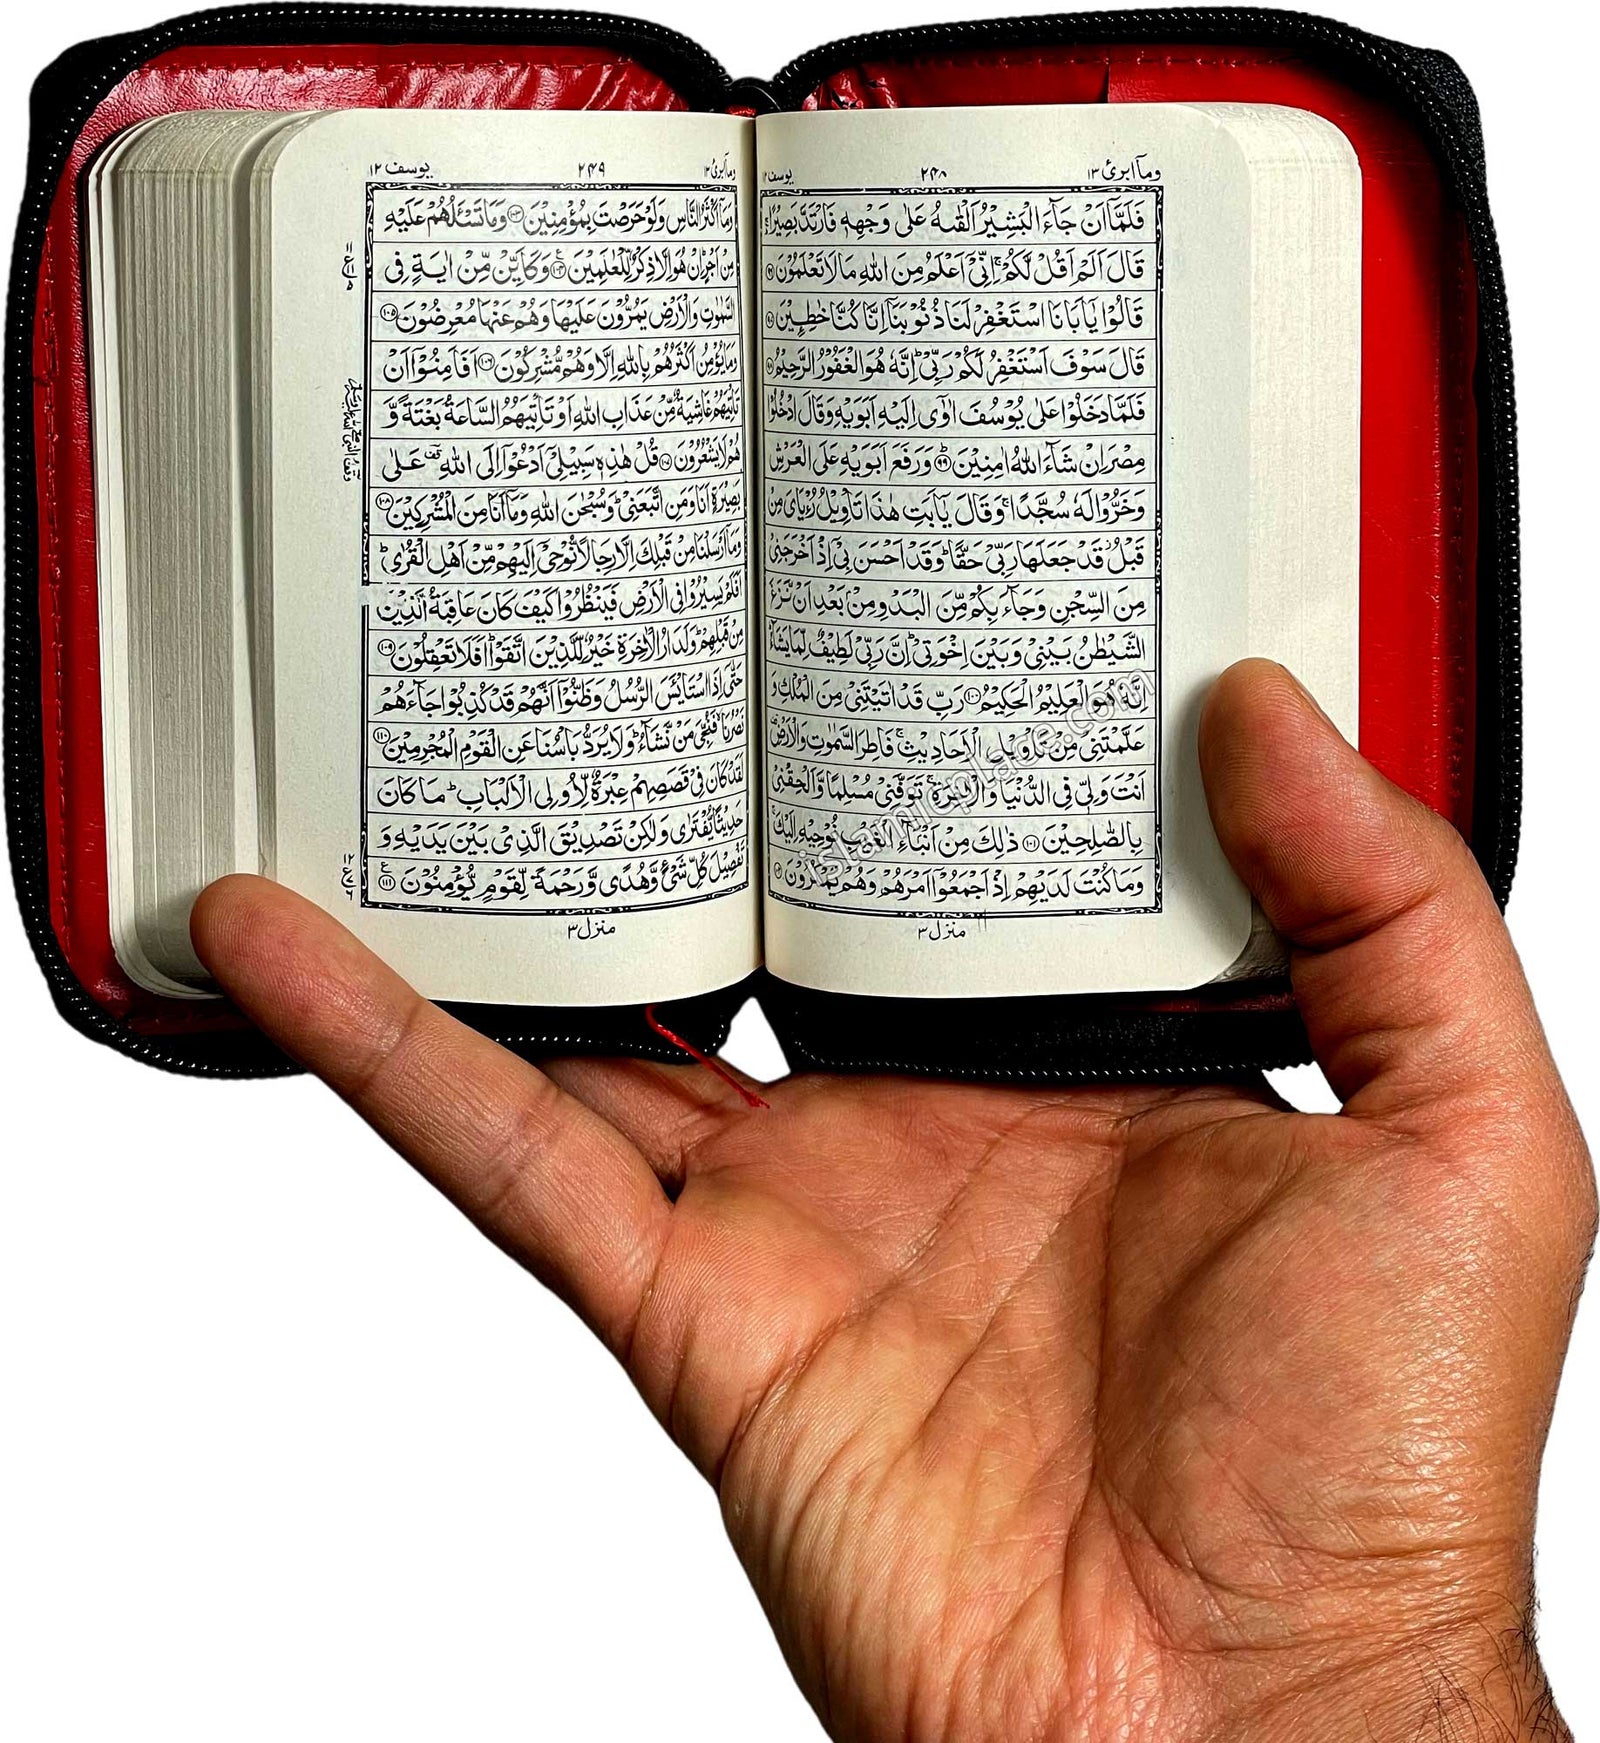 وماۤ ابرئ ١٣
٢٤٨
يوسف ١٢
فَلَمَّاۤ اَنْ جَآءَ الْبَشِيْرُ اَلْقٰىهُ عَلٰى وَجْهِهٖ فَارْتَدَّ بَصِيْرًا ۚ
قَالَ اَلَمْ اَقُلْ لَّكُمْ ۚ اِنِّيْۤ اَعْلَمُ مِنَ اللّٰهِ مَا لَا تَعْلَمُوْنَ
قَالُوْا يٰۤاَبَانَا اسْتَغْفِرْ لَنَا ذُنُوْبَنَاۤ اِنَّا كُنَّا خٰطِـِٕيْنَ
قَالَ سَوْفَ اَسْتَغْفِرُ لَكُمْ رَبِّيْ ؕ اِنَّهٗ هُوَ الْغَفُوْرُ الرَّحِيْمُ
فَلَمَّا دَخَلُوْا عَلٰى يُوْسُفَ اٰوٰۤى اِلَيْهِ اَبَوَيْهِ وَقَالَ ادْخُلُوْا
مِصْرَ اِنْ شَآءَ اللّٰهُ اٰمِنِيْنَ ٩٩ وَرَفَعَ اَبَوَيْهِ عَلَى الْعَرْشِ
وَخَرُّوْا لَهٗ سُجَّدًا ۚ وَقَالَ يٰۤاَبَتِ هٰذَا تَاْوِيْلُ رُءْيَايَ مِنْ
قَبْلُ ؗ قَدْ جَعَلَهَا رَبِّيْ حَقًّا ؕ وَقَدْ اَحْسَنَ بِيْۤ اِذْ اَخْرَجَنِيْ
مِنَ السِّجْنِ وَجَآءَ بِكُمْ مِّنَ الْبَدْوِ مِنْۢ بَعْدِ اَنْ نَّزَغَ
الشَّيْطٰنُ بَيْنِيْ وَبَيْنَ اِخْوَتِيْ ؕ اِنَّ رَبِّيْ لَطِيْفٌ لِّمَا يَشَآءُ ؕ
اِنَّهٗ هُوَ الْعَلِيْمُ الْحَكِيْمُ ١٠٠ رَبِّ قَدْ اٰتَيْتَنِيْ مِنَ الْمُلْكِ وَ
عَلَّمْتَنِيْ مِنْ تَاْوِيْلِ الْاَحَادِيْثِ ۚ فَاطِرَ السَّمٰوٰتِ وَالْاَرْضِ
اَنْتَ وَلِيّٖ فِي الدُّنْيَا وَالْاٰخِرَةِ ۚ تَوَفَّنِيْ مُسْلِمًا وَّاَلْحِقْنِيْ
بِالصّٰلِحِيْنَ ١٠١ ذٰلِكَ مِنْ اَنْۢبَآءِ الْغَيْبِ نُوْحِيْهِ اِلَيْكَ ۚ
وَمَا كُنْتَ لَدَيْهِمْ اِذْ اَجْمَعُوْۤا اَمْرَهُمْ وَهُمْ يَمْكُرُوْنَ
منزل ٣
islamicplace.com
وماۤ ابرئ ١٣
٢٤٩
يوسف ١٢
وَمَاۤ اَكْثَرُ النَّاسِ وَلَوْ حَرَصْتَ بِمُؤْمِنِيْنَ ١٠٣ وَمَا تَسْـَٔلُهُمْ عَلَيْهِ
مِنْ اَجْرٍ ؕ اِنْ هُوَ اِلَّا ذِكْرٌ لِّلْعٰلَمِيْنَ ١٠٤ وَكَاَيِّنْ مِّنْ اٰيَةٍ فِي
السَّمٰوٰتِ وَالْاَرْضِ يَمُرُّوْنَ عَلَيْهَا وَهُمْ عَنْهَا مُعْرِضُوْنَ ١٠٥
وَمَا يُؤْمِنُ اَكْثَرُهُمْ بِاللّٰهِ اِلَّا وَهُمْ مُّشْرِكُوْنَ ١٠٦ اَفَاَمِنُوْۤا اَنْ
تَاْتِيَهُمْ غَاشِيَةٌ مِّنْ عَذَابِ اللّٰهِ اَوْ تَاْتِيَهُمُ السَّاعَةُ بَغْتَةً وَّ
هُمْ لَا يَشْعُرُوْنَ ١٠٧ قُلْ هٰذِهٖ سَبِيْلِيْۤ اَدْعُوْۤا اِلَى اللّٰهِ ؔ عَلٰى
بَصِيْرَةٍ اَنَا وَمَنِ اتَّبَعَنِيْ ؕ وَسُبْحٰنَ اللّٰهِ وَمَاۤ اَنَا مِنَ الْمُشْرِكِيْنَ ١٠٨
وَمَاۤ اَرْسَلْنَا مِنْ قَبْلِكَ اِلَّا رِجَالًا نُّوْحِيْۤ اِلَيْهِمْ مِّنْ اَهْلِ الْقُرٰى ؕ
اَفَلَمْ يَسِيْرُوْا فِي الْاَرْضِ فَيَنْظُرُوْا كَيْفَ كَانَ عَاقِبَةُ الَّذِيْنَ
مِنْ قَبْلِهِمْ ؕ وَلَدَارُ الْاٰخِرَةِ خَيْرٌ لِّلَّذِيْنَ اتَّقَوْا ؕ اَفَلَا تَعْقِلُوْنَ ١٠٩
حَتّٰۤى اِذَا اسْتَايْـَٔسَ الرُّسُلُ وَظَنُّوْۤا اَنَّهُمْ قَدْ كُذِبُوْا جَآءَهُمْ
نَصْرُنَا ۙ فَنُجِّيَ مَنْ نَّشَآءُ ؕ وَلَا يُرَدُّ بَاْسُنَا عَنِ الْقَوْمِ الْمُجْرِمِيْنَ ١١٠
لَقَدْ كَانَ فِيْ قَصَصِهِمْ عِبْرَةٌ لِّاُولِي الْاَلْبَابِ ؕ مَا كَانَ
حَدِيْثًا يُّفْتَرٰى وَلٰكِنْ تَصْدِيْقَ الَّذِيْ بَيْنَ يَدَيْهِ وَ
تَفْصِيْلَ كُلِّ شَيْءٍ وَّهُدًى وَّرَحْمَةً لِّقَوْمٍ يُّؤْمِنُوْنَ ١١١
منزل ٣